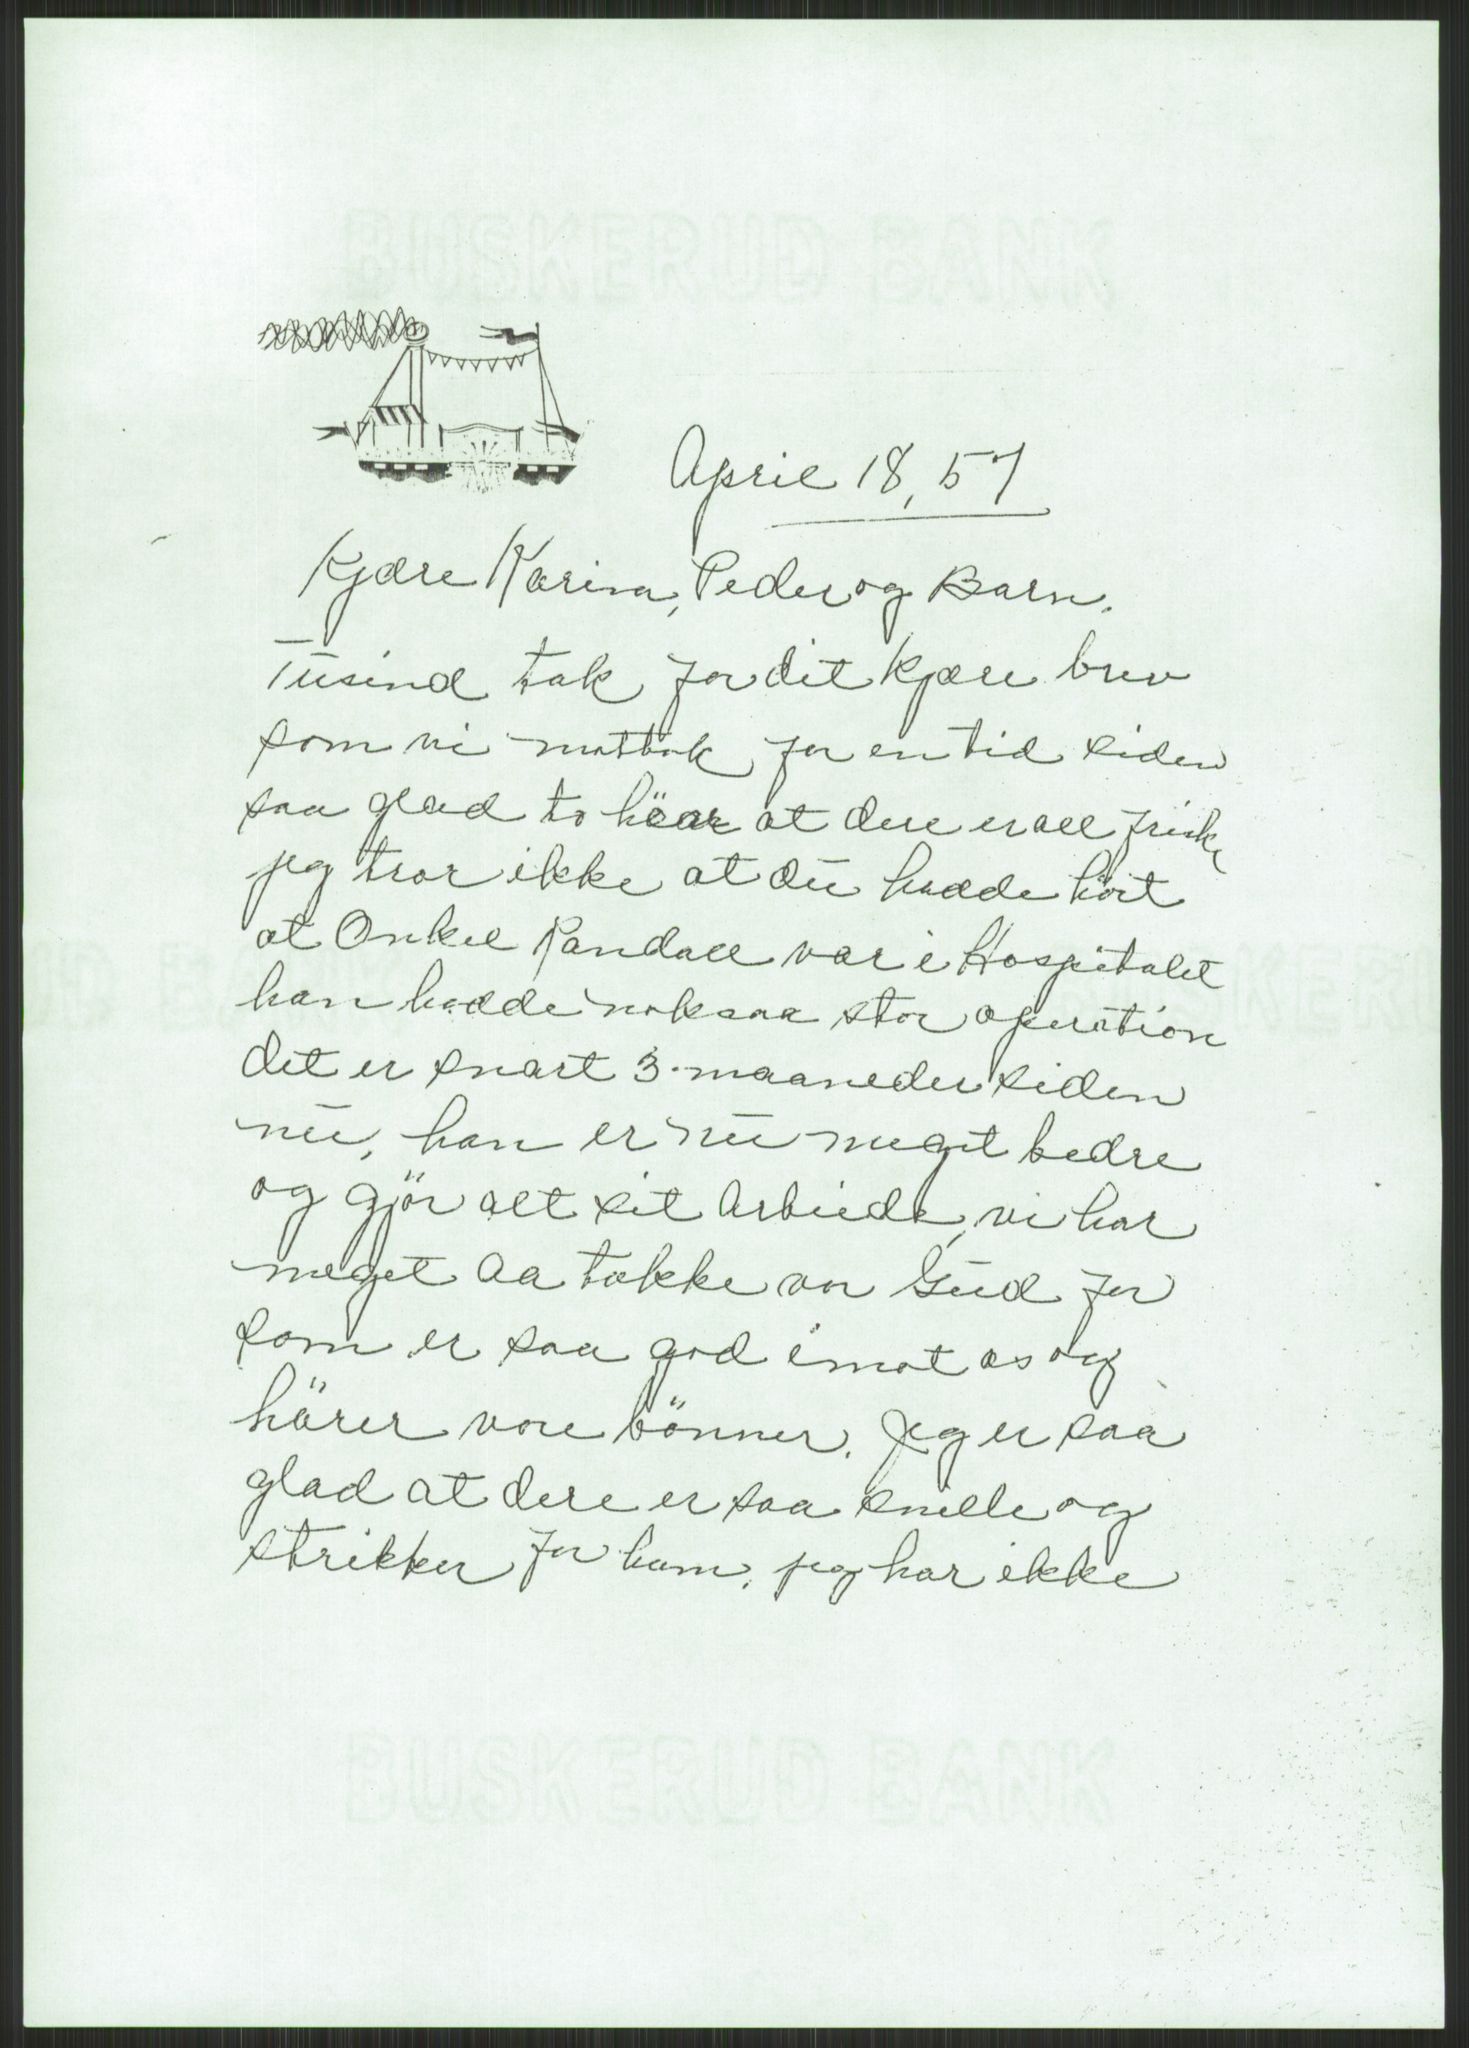 BUSKERUD BANK
April 18, 57
Kjære Karina, Peder og Barn.
Tusind tak for dit kjære brev
som vi mottok for en tid siden
saa glad to hear at dere er all friske
jeg tror ikke at du hadde hört
at Onkel Randall var i Hospitalet
han hadde noksaa stor operation
det er snart 3 maaneder siden
nu, han er nu meget bedre
og gjör alt sit Arbeide, vi har
meget Aa takke vor Gud for
som er saa god imot os og
hörer vore bönner. Jeg er saa
glad at dere er saa snille og
strikker for ham. jeg har ikke
BUSKERUD BANK